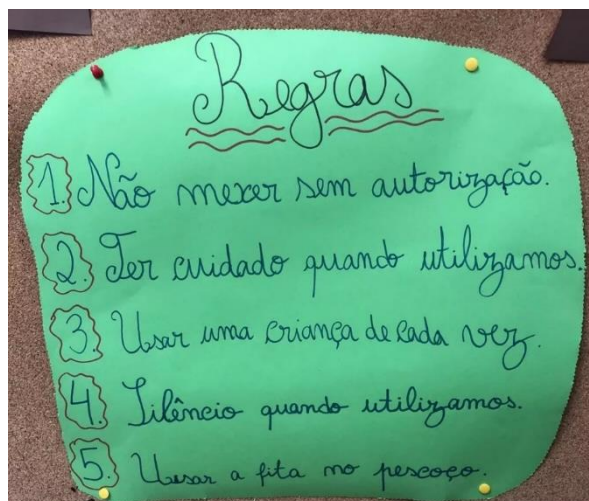 Regras
1. Não mexer sem autorização.
2. Ter cuidado quando utilizamos.
3. Usar uma criança de cada vez.
4. Silêncio quando utilizamos.
5. Usar a fita no pescoço.